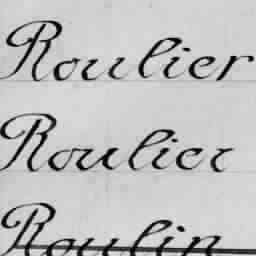 Roulier
Roulier
Roulin